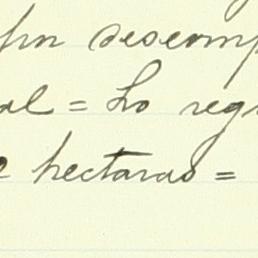 por desemp
al = Lo regu
hectareas =